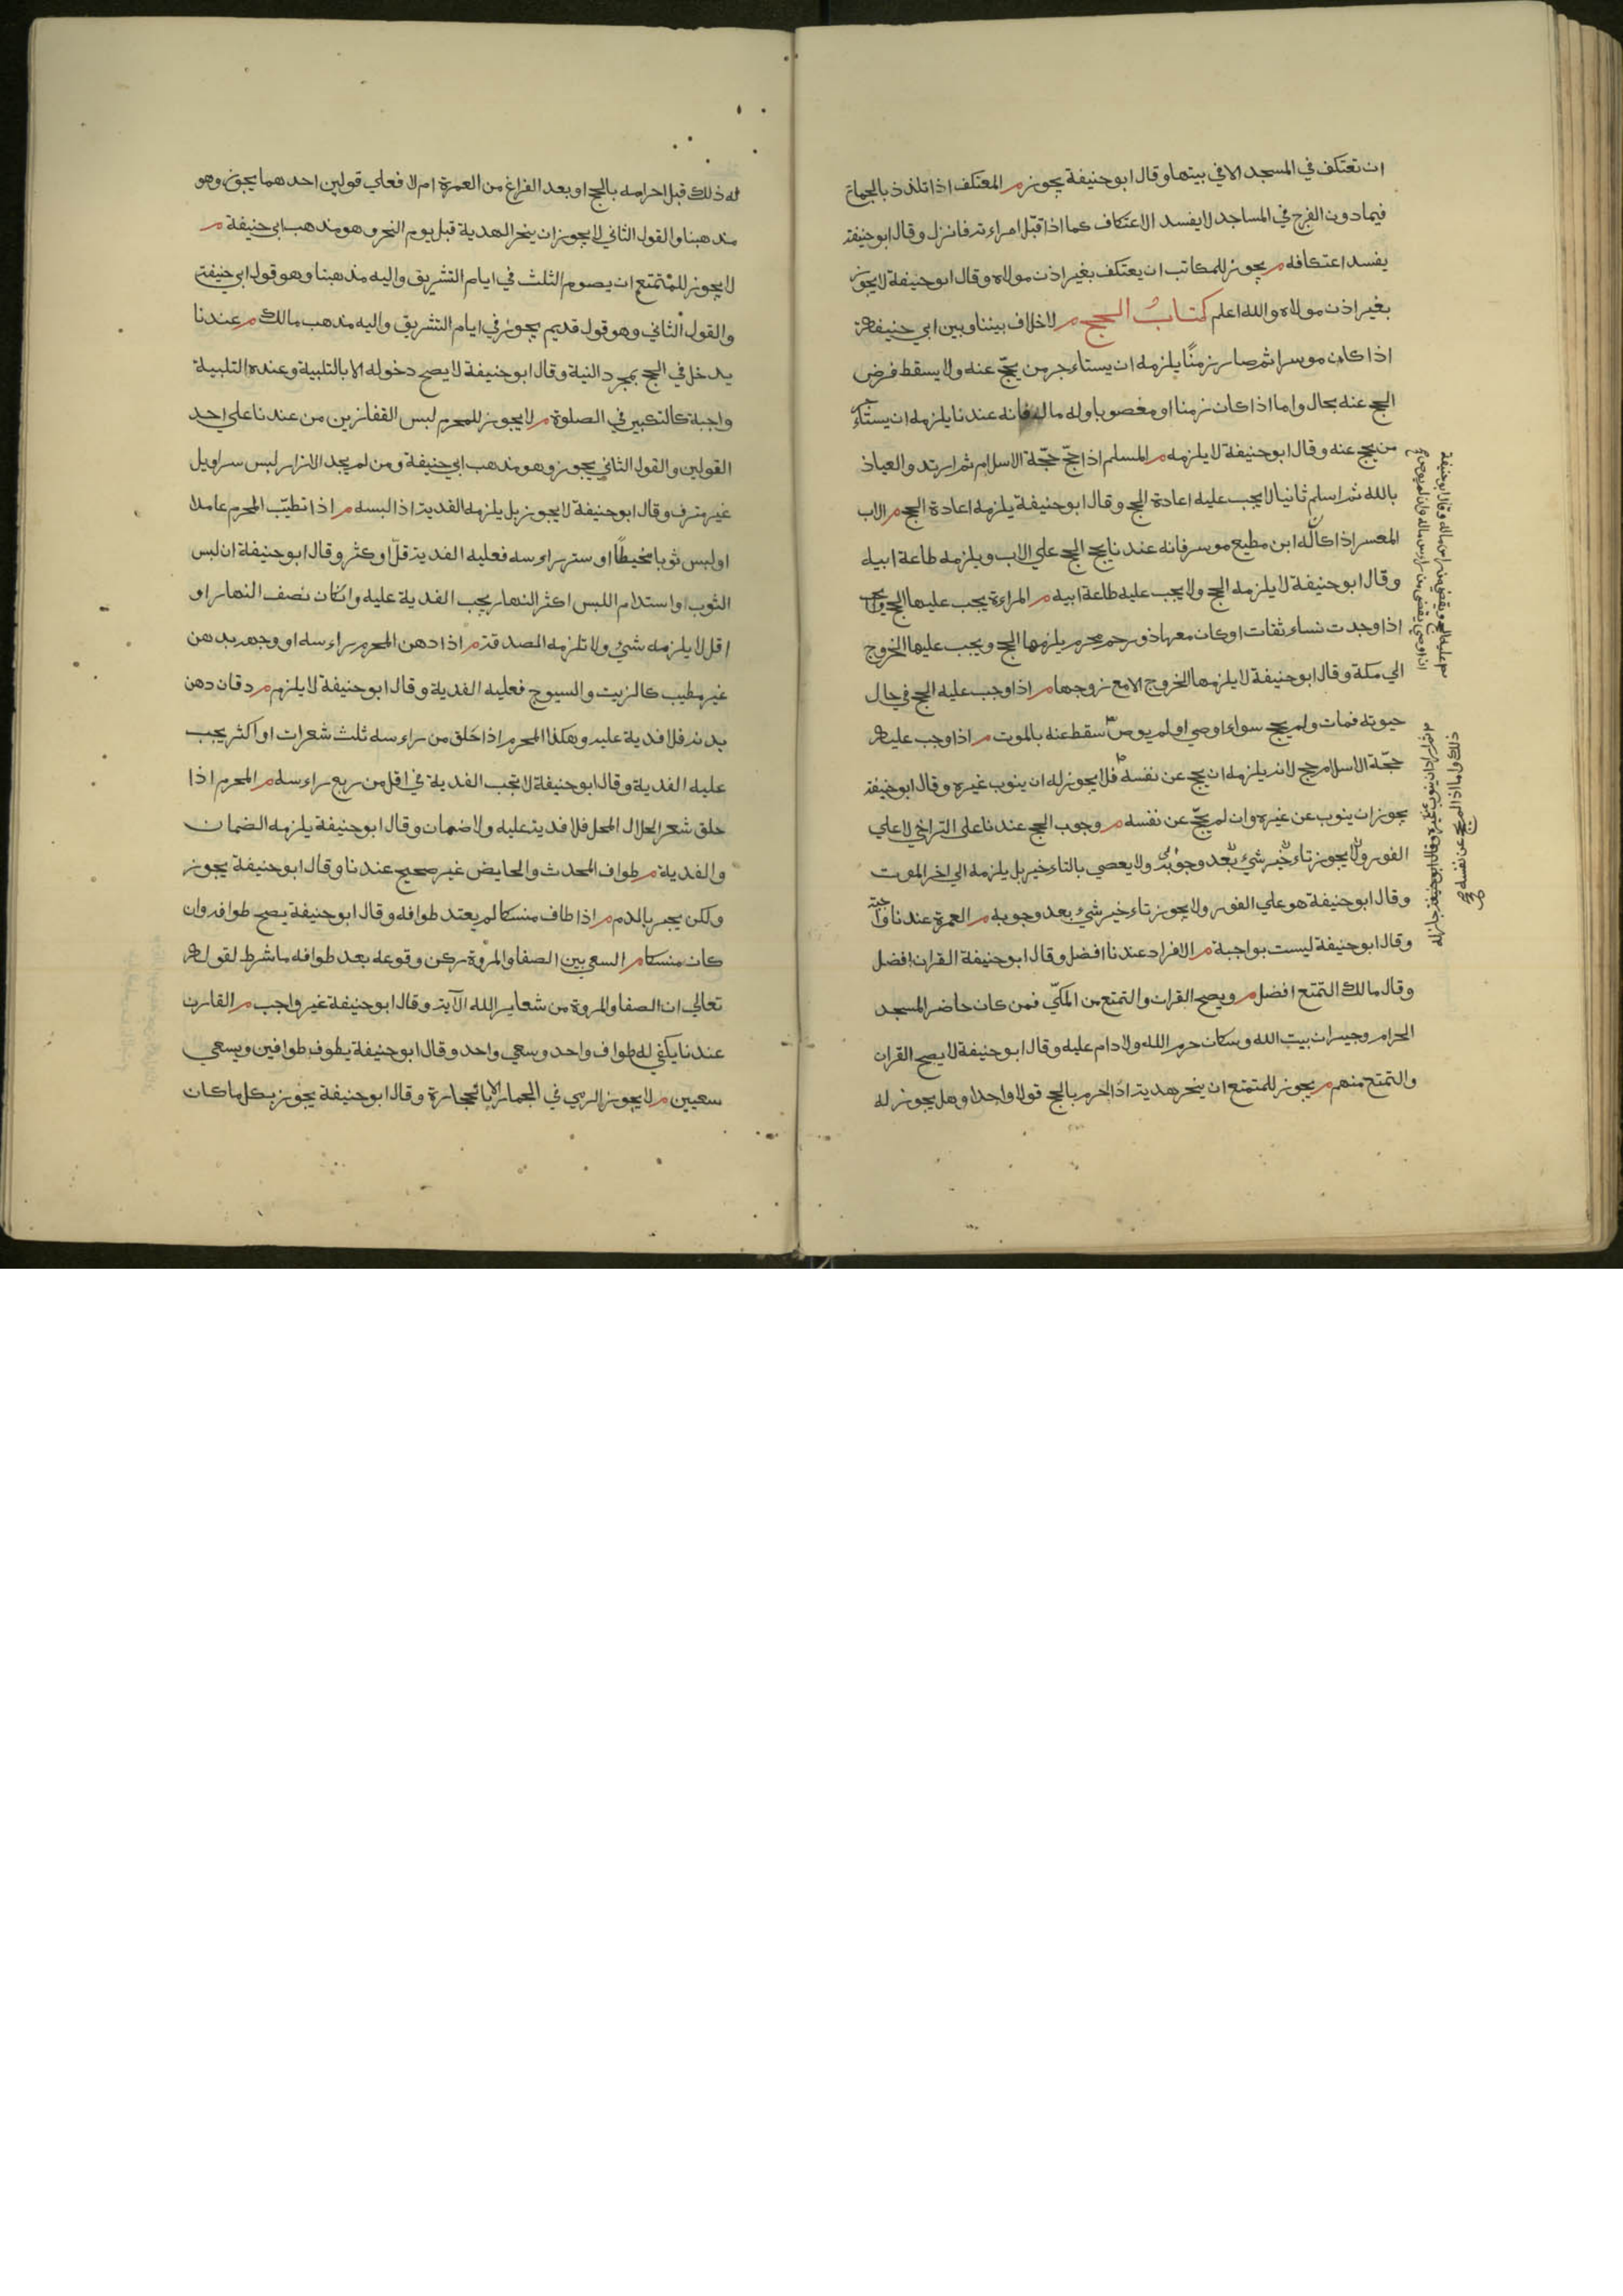 ان تعتكف في المسجد الا في بيتها وقال ابو حنيفة يجوز م المعتكف اذا تلذذ بالجماع
فيما دون الفرج في المساجد لا يفسد الاعتكاف كما اذا قبّل امراءته فانزل وقال ابو حنيفة
يفسد اعتكافه م يجوز للمكاتب ان يعتكف بغير اذن مولاه وقال ابو حنيفة لا يجوز
بغير اذن مولاه والله اعلم كتاب الحج م لا خلاف بيننا وبين ابي حنيفة
اذا كان موسرا ثم صار زمنًا يلزمه ان يستاءجر من يحجّ عنه ولا يسقط فرض
الحج عنه بحال واما اذا كان زمنا او مغصوبا وله مال فانه عندنا يلزمه ان يستاءجر
من يحج عنه وقال ابو حنيفة لا يلزمه م المسلم اذا حجّ حجّة الاسلام ثم ارتد والعياذ
بالله ثم اسلم ثانيا لا يجب عليه اعادة الحج وقال ابو حنيفة يلزمه اعادة الحج م الاب
المعسر اذا كان له ابن مطيع موسر فانه عندنا يجب الحج علي الاب ويلزمه طاعة ابيه
وقال ابو حنيفة لا يلزمه الحج ولا يجب عليه طاعة ابيه م المراءة يجب عليها الحج
اذا وجدت نساء ثقات او كان معها ذو رحم محرم يلزمها الحج ويجب عليها الخروج
الي مكة وقال ابو حنيفة لا يلزمها الخروج الا مع زوجها م اذا وجب عليه الحج في حال
حيوته فمات ولم يحج سواء اوصي او لم يوص سقط عنه بالموت م اذا وجب عليه
حجّة الاسلام حج لانه يلزمه ان يحج عن نفسه فلا يجوز له ان ينوب غيره وقال ابو حنيفة
يجوز ان ينوب عن غيره وان لم يحجّ عن نفسه م وجوب الحج عندنا علي التراخي لا علي
الفور ولا يجوز تاءخير شيء بعد وجوبه ولا يعصي بالتاءخير بل يلزمه الي اخر الموت
وقال ابو حنيفة هو علي الفور ولا يجوز تاءخير شيء بعد وجوبه م العمرة عندنا واجبة
وقال ابو حنيفة ليست بواجبة م الافراد عندنا افضل وقال ابو حنيفة القران افضل
وقال مالك التمتع افضل م ويصح القران والتمتع من المكيّ فمن كان حاضر المسجد
الحرام وجيران بيت الله وسكان حرم الله ولا دام عليه وقال ابو حنيفة لا يصح القران
والتمتع منهم م يجوز للمتمتع ان ينحر هديته اذا احرم بالحج قولا واحدا وهل يجوز له
اذا اوصي يقضي من راس ماله وان لم يوص
ثم اراد ان ينوب عن غيره وقال ابو حنيفة جاز له
ذلك واما اذا لم يحج عن نفسه
له ذلك قبل احرامه بالحج او بعد الفراغ من العمرة ام لا فعلي قولين احدهما يجوز وهو
مذهبنا والقول الثاني لا يجوز ان ينحر الهدية قبل يوم النحر وهو مذهب ابي حنيفة م
لا يجوز للمتمتع ان يصوم الثلث في ايام التشريق واليه مذهبنا وهو قول ابي حنيفة
والقول الثاني وهو قول قديم يجوز في ايام التشريق واليه مذهب مالك م عندنا
يدخل في الحج بمجرد النية وقال ابو حنيفة لا يصح دخوله الا بالتلبية وعنده التلبية
واجبة كالتكبير في الصلوة م لا يجوز للمحرم لبس القفازين من عندنا علي احد
القولين والقول الثاني يجوز وهو مذهب ابي حنيفة ومن لم يجد الازار لبس سراويل
غير مترف وقال ابو حنيفة لا يجوز بل يلزمه الفدية اذا لبسه م اذا تطيّب المحرم عاملا
او لبس ثوبا مخيطًا او ستر راءسه فعليه الفدية قلّ او كثر وقال ابو حنيفة ان لبس
الثوب او استدام اللبس اكثر النهار يجب الفدية عليه وانكان نصف النهار او
اقل لا يلزمه شيء ولا تلزمه الصدقة م اذا دهن المحرم راءسه او وجهه بدهن
غير مطيب كالزيت والسيوج فعليه الفدية وقال ابو حنيفة لا يلزم م دقان دهن
بدنه فلا فدية عليه وهكذا المحرم اذا حلق من راءسه ثلث شعرات او اكثر يجب
عليه الفدية وقال ابو حنيفة لا تجب الفدية في اقل من ربع راءسه م المحرم اذا
حلق شعر الحلال المحل فلا فدية عليه ولا ضمان وقال ابو حنيفة يلزمه الضمان
والفدية م طواف المحدث والحايض غير صحيح عندنا وقال ابو حنيفة يجوز
ولكن يجبر بالدم م اذا طاف منسكا لم يعتد طوافه وقال ابو حنيفة يصح طوافه وان
كان منسكا م السعي بين الصفا والمروة ركن وقوعه بعد طوافه ما شرط لقوله
تعالي ان الصفا والمروة من شعاير الله الآية وقال ابو حنيفة غير واجب م القارن
عندنا يكفي له طواف واحد وسعي واحد وقال ابو حنيفة يطوف طوافين ويسعي
سعيين م لا يجوز الرمي في الجمار الا بالحجارة وقال ابو حنيفة يجوز بكل ما كان